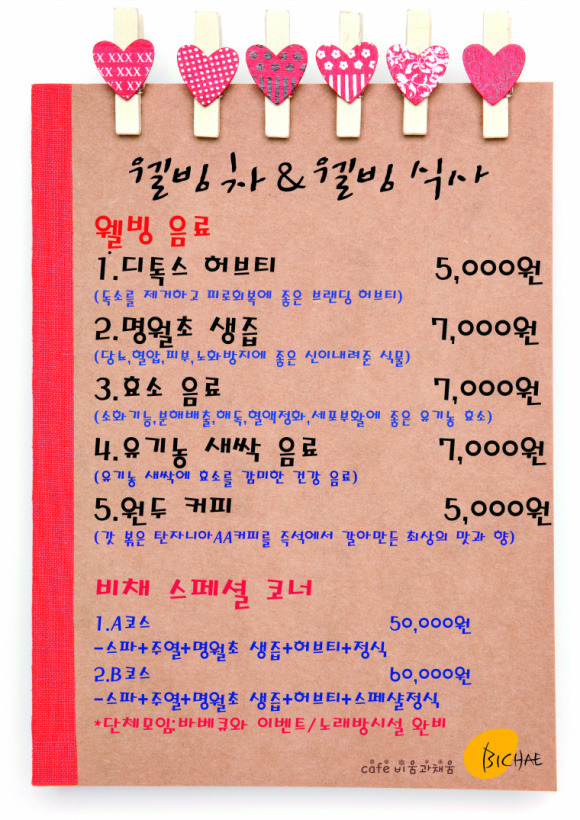 웰빙 차 & 웰빙 식사
웰빙 음료
1.디톡스 허브티 5,000원
(독소를 제거하고 피로회복에 좋은 브랜딩 허브티)
2.명월초 생즙 7,000원
(당뇨,혈압,피부,노화방지에 좋은 신이내려준 식물)
3.효소 음료 7,000원
(소화기능,분해배출,해독,혈액정화,세포부활에 좋은 유기농 효소)
4.유기농 새싹 음료 7,000원
(유기농 새싹에 효소를 감미한 건강 음료)
5.원두 커피 5,000원
(갓 볶은 탄자니아AA커피를 즉석에서 갈아만든 최상의 맛과 향)
비채 스페셜 코너
1.A코스 50,000원
-스파+주열+명월초 생즙+허브티+정식
2.B코스 60,000원
-스파+주열+명월초 생즙+허브티+스페샬정식
*단체모임:바베큐와 이벤트/노래방시설 완비
cafe 비움과채움
BICHAE